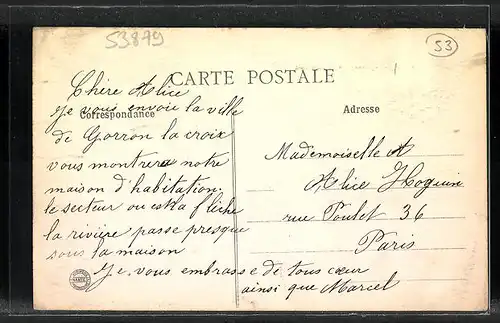 53879
53
CARTE POSTALE
Correspondance
Adresse
Chère Alice
je vous envoie la ville
de Gorron la croix
vous montrera notre
maison d'habitation.
le secteur ou est la flèche
la rivière passe presque
sous la maison
Je vous embrasse de tous cœur
ainsi que Marcel
Mademoiselle A
Alice Hoguin
rue Poulet 36
Paris